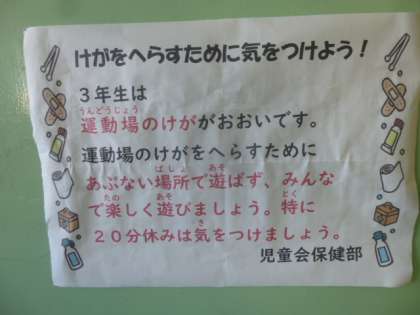 けがをへらすために気をつけよう！
３年生は
うんどうじょう
運動場のけががおおいです。
運動場のけがをへらすために
ばしょ あそ
あぶない場所で遊ばず、みんな
たの あそ とく
で楽しく遊びましょう。特に
き
２０分休みは気をつけましょう。
児童会保健部